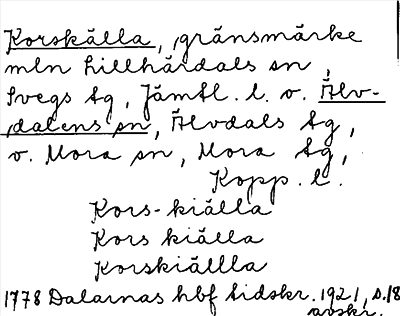 Korskälla, gränsmärke
mln Lillhärdals sn,
Svegs tg, Jämtl. l. o. Älv-
dalens sn, Älvdals tg,
o. Mora sn, Mora tg,
Kopp. l.
Kors-kiälla
Kors kiälla
Korskiällla
1778 Dalarnas hbf tidskr. 1921, s. 18
avskr.